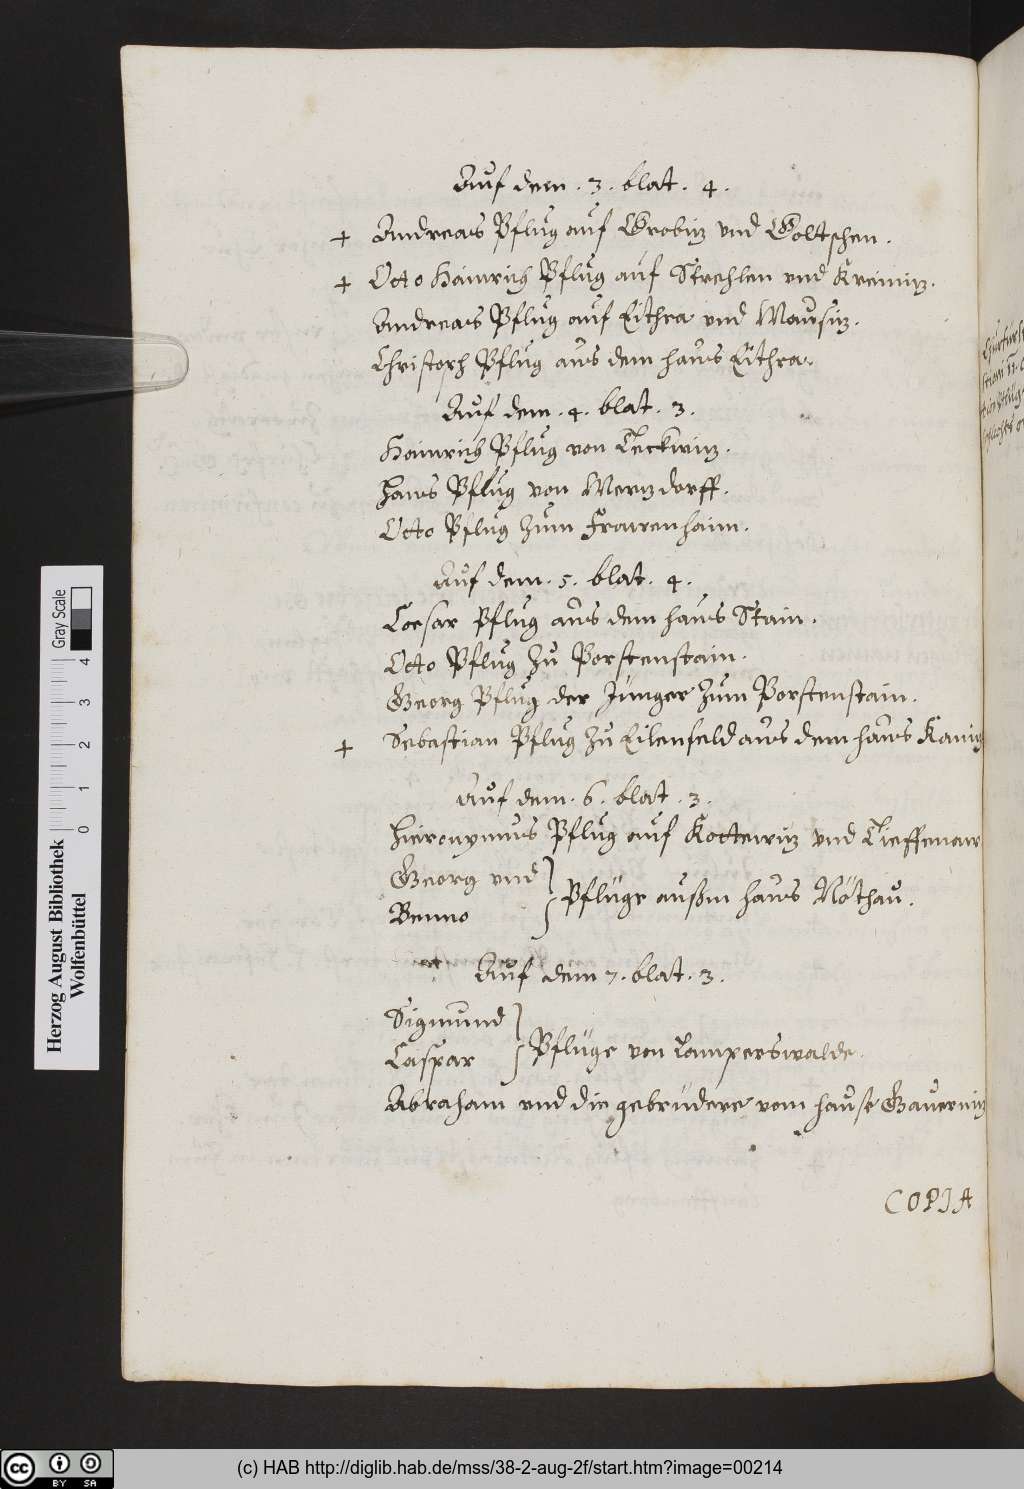 Auf dem . 3 . blat . 4 .
+ Andreas Pflug auf Grobitz und Goltschen .
+ Otto Hainrich Pflug auf Strehlen und Kreinitz .
Andreas Pflug auf Eithra und Mausitz .
Christoph Pflug aus dem haus Eithra .
Auf dem . 4 . blat . 3 .
Hainrich Pflug von Teckwitz .
Hans Pflug von Wernzdorff .
Otto Pflug zum Frauenhain .
Auf dem . 5 . blat . 4 .
Coesar Pflug aus dem haus Stain .
Otto Pflug zu Porstenstain .
Georg Pflug der Jünger zum Porstenstain .
+ Sebastian Pflug zu Eilenfeld aus dem haus Kanig
Auf dem . 6 . blat . 3 .
Hieronymus Pflug auf Kottewitz und Tieffenaw
Georg und
Benno
Pflüge außm haus Nöthau .
Auf dem 7 . blat . 3 .
Sigmund
Caspar
Pflüge von Lamperswalde .
Abraham und die gebrüdere vom hause Gauernitz
COPIA
Herzog August Bibliothek
Wolfenbüttel
0 1 2 3 4
Gray Scale
cc BY SA
(c) HAB http://diglib.hab.de/mss/38-2-aug-2f/start.htm?image=00214